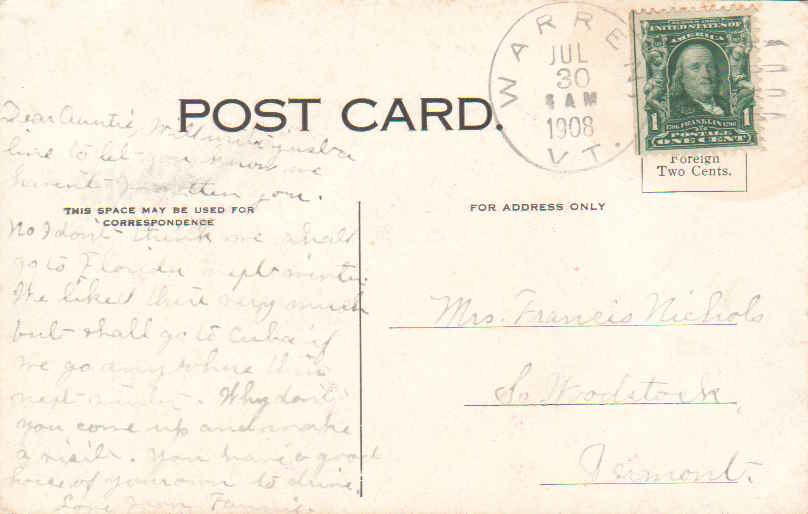 POST CARD.
WARREN
JUL
30
6 AM
1908
VT.
UNITED STATES OF
AMERICA
1 1706 FRANKLIN 1790 1
POSTAGE
ONE CENT
Foreign
Two Cents.
THIS SPACE MAY BE USED FOR
CORRESPONDENCE
FOR ADDRESS ONLY
Dear Auntie, Will write just a
line to let you know we
havent forgotten you.
No I don't think we shall
go to Florida next winter.
We liked there very much
but shall go to Cuba if
we go any where this
next winter. Why don't
you come up and make
a visit. You have a good
horse of your own to drive.
Love from Fannie.
Mrs. Francis Nichols
So. Woodstock,
Vermont.